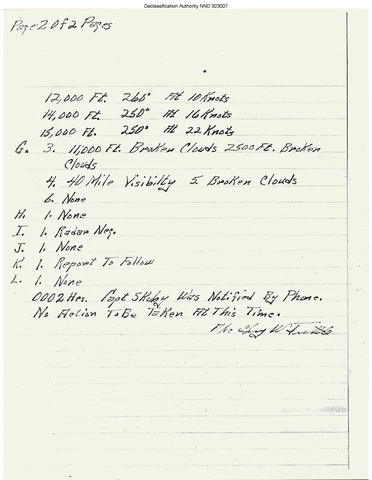 Declassification Authority NND 923007
Page 2 of 2 Pages
12,000 Ft. 260° At 10 Knots
14,000 Ft. 250° At 16 Knots
15,000 Ft. 250° At 22 Knots
G. 3. 11,000 Ft. Broken Clouds 2500 Ft. Broken
Clouds
4. 40 Mile Visibilty 5. Broken Clouds
6. None
H. 1. None
I. 1. Radar Neg.
J. 1. None
K. 1. Report To Follow
L. 1. None
0002 Hrs. Capt Was Notified By Phone.
No Action To Be Taken At This Time.